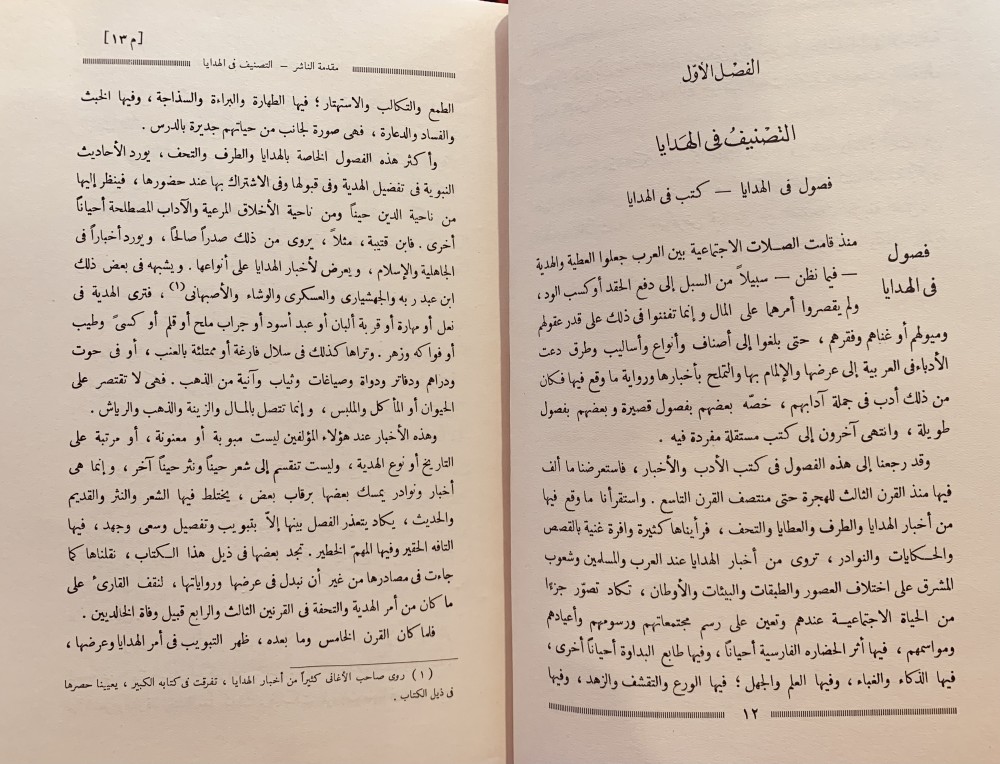 الفصل الأول
التصنيف فى الهدايا
فصول فى الهدايا — كتب فى الهدايا
فصول
فى الهدايا
منذ قامت الصلات الاجتماعية بين العرب جعلوا العطية والهدية
— فيما نظن — سبيلاً من السبل إلى دفع الحقد أو كسب الود ،
ولم يقصروا أمرهما على المال وإنما تفننوا فى ذلك على قدر عقولهم
وميولهم أو غناهم وفقرهم ، حتى بلغوا إلى أصناف وأنواع وأساليب وطرق دعت
الأدباء فى العربية إلى عرضها والإلمام بها والتملح بأخبارها ورواية ما وقع فيها فكان
من ذلك أدب فى جملة آدابهم ، خصّه بعضهم بفصول قصيرة وبعضهم بفصول
طويلة ، وانتهى آخرون إلى كتب مستقلة مفردة فيه .
وقد رجعنا إلى هذه الفصول فى كتب الأدب والأخبار ، فاستعرضنا ما ألف
فيها منذ القرن الثالث للهجرة حتى منتصف القرن التاسع . واستقرأنا ما وقع فيها
من أخبار الهدايا والطرف والعطايا والتحف ، فرأيناها كثيرة وافرة غنية بالقصص
والحكايات والنوادر ، تروى من أخبار الهدايا عند العرب والمسلمين وشعوب
المشرق على اختلاف العصور والطبقات والبيئات والأوطان ، تكاد تصوّر جزءًا
من الحياة الاجتماعية عندهم وتعين على رسم مجتمعاتهم ورسومهم وأعيادهم
ومواسمهم ، فيها أثر الحضاره الفارسية أحياناً ، وفيها طابع البداوة أحياناً أخرى ،
فيها الذكاء والغباء ، وفيها العلم والجهل ؛ فيها الورع والتقشف والزهد ، وفيها
١٢
[م ١٣]
مقدمة الناشر — التصنيف فى الهدايا
الطمع والتكالب والاستهتار ؛ فيها الطهارة والبراءة والسذاجة ، وفيها الخبث
والفساد والدعارة ، فهى صورة لجانب من حياتهم جديرة بالدرس .
وأكثر هذه الفصول الخاصة بالهدايا والطرف والتحف ، يورد الأحاديث
النبوية فى تفضيل الهدية وفى قبولها وفى الاشتراك بها عند حضورها ، فينظر إليها
من ناحية الدين حيناً ومن ناحية الأخلاق المرعية والآداب المصطلحة أحياناً
أخرى . فابن قتيبة ، مثلاً ، يروى من ذلك صدراً صالحاً ، ويورد أخباراً فى
الجاهلية والإسلام ، ويعرض لأخبار الهدايا على أنواعها . ويشبهه فى بعض ذلك
ابن عبد ربه والجهشيارى والعسكرى والوشاء والأصبهانى (١) ، فترى الهدية فى
نعل أو مهارة أو قربة ألبان أو عبد أسود أو جراب ملح أو قلم أو كسىً وطيب
أو فواكه وزهر . وتراها كذلك فى سلال فارغة أو ممتلئة بالعنب ، أو فى حوت
ودراهم ودفاتر ودواة وصياغات وثياب وآنية من الذهب . فهى لا تقتصر على
الحيوان أو المأكل والملبس ، وإنما تتصل بالمال والزينة والذهب والرياش .
وهذه الأخبار عند هؤلاء المؤلفين ليست مبوبة أو معنونة ، أو مرتبة على
التاريخ أو نوع الهدية ، وليست تنقسم إلى شعر حيناً ونثر حيناً آخر ، وإنما هى
أخبار ونوادر يمسك بعضها برقاب بعض ، يختلط فيها الشعر والنثر والقديم
والحديث ، يكاد يتعذر الفصل بينها إلاّ بتبويب وتفصيل وسعى وجهد ، فيها
التافه الحقير وفيها المهمّ الخطير . تجد بعضها فى ذيل هذا الكتاب ، نقلناها كما
جاءت فى مصادرها من غير أن نبدل فى عرضها ورواياتها ، لنقف القارئ على
ما كان من أمر الهدية والتحفة فى القرنين الثالث والرابع قبيل وفاة الخالديين .
فلما كان القرن الخامس وما بعده ، ظهر التبويب فى أمر الهدايا وعرضها ،
(١) روى صاحب الأغانى كثيراً من أخبار الهدايا ، تفرقت فى كتابه الكبير ، يعيينا حصرها
فى ذيل الكتاب .